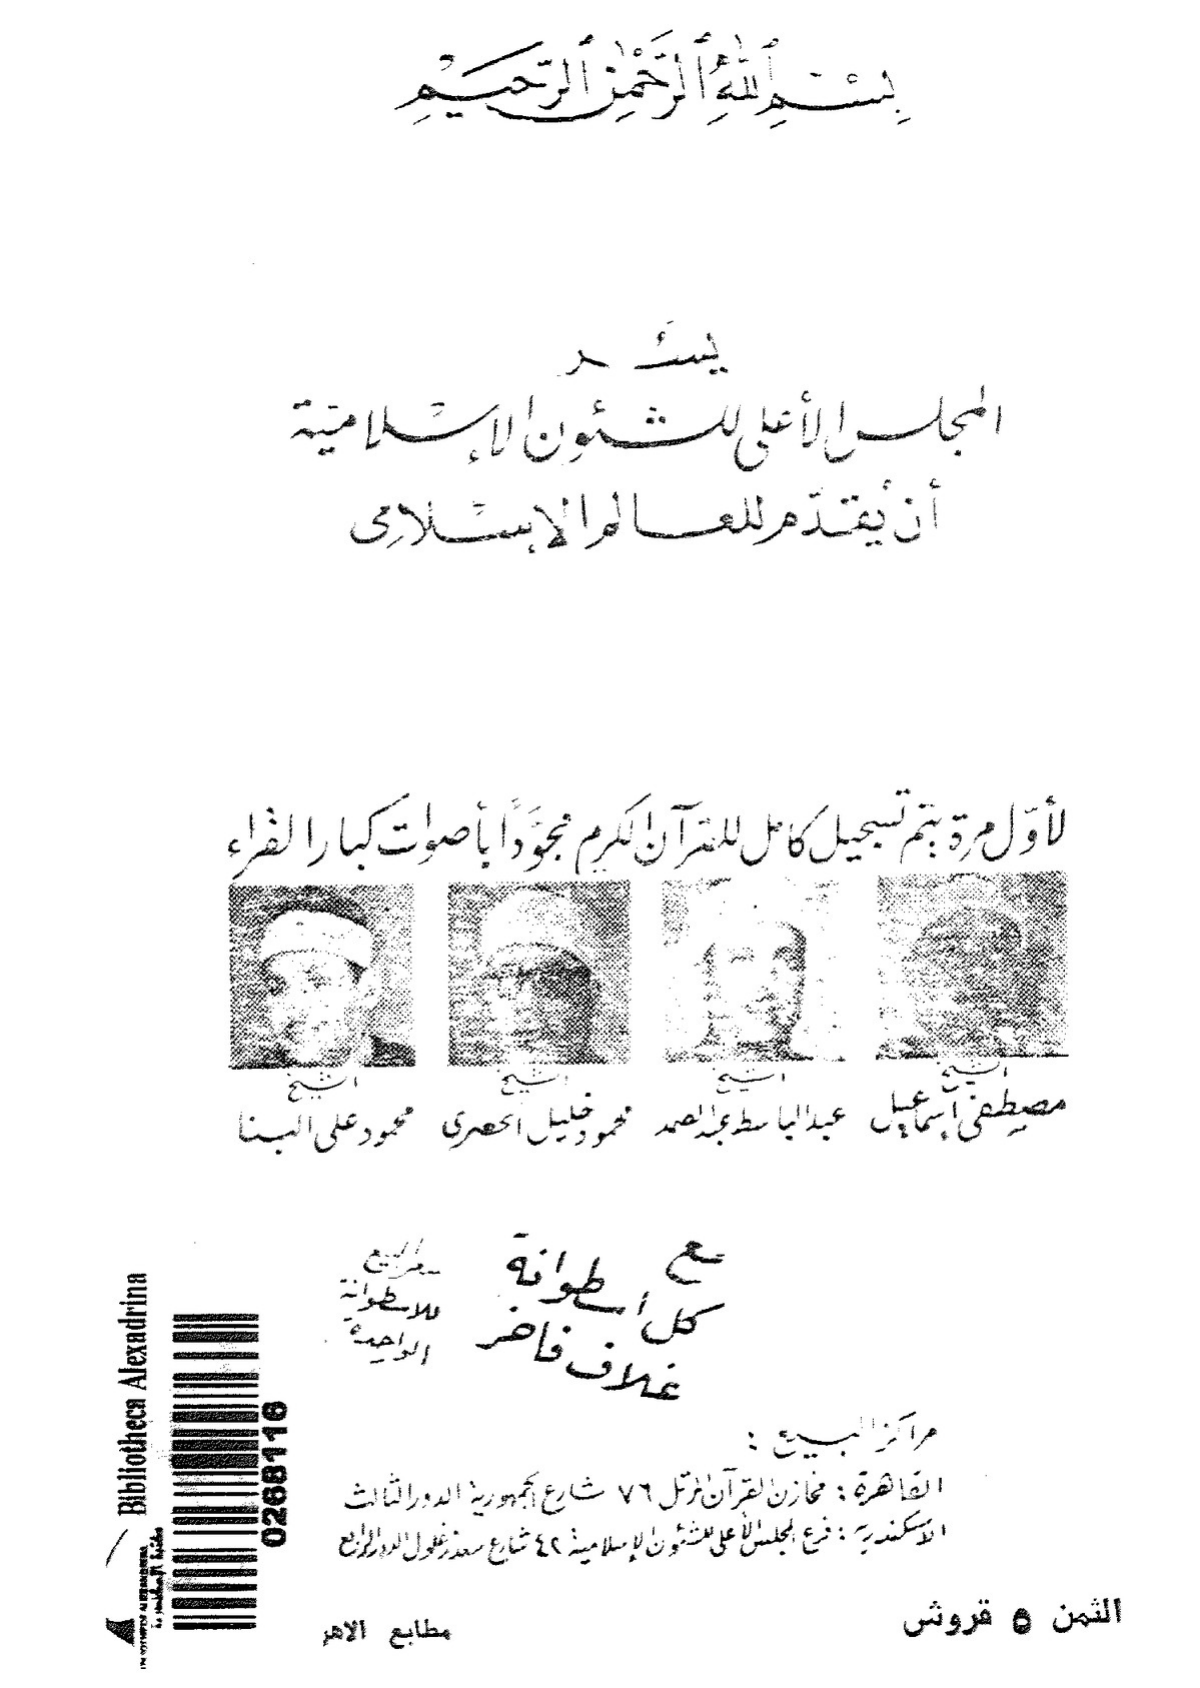 بِسْمِ ٱللَّهِ ٱلرَّحْمَٰنِ ٱلرَّحِيمِ
يسر
المجلس الأعلى للشئون الإسلامية
أن يُقدّم للعالم الإسلامى
لأوّل مرة يتم تسجيل كامل للقرآن الكريم مجوَّدًا بأصوات كبار القراء
الشيخ
مصطفى إسماعيل
الشيخ
عبد الباسط عبد الصمد
الشيخ
محمود خليل الحصرى
الشيخ
محمود على البنا
مع
كل أسطوانة
غلاف فاخر
للاسطوانة
الواحدة
مراكز البيع :
القاهرة : مخازن القرآن المرتل ٧٦ شارع الجمهورية الدور الثالث
الاسكندرية : فرع المجلس الأعلى للشئون الإسلامية ٤٢ شارع سعد زغلول الدور الرابع
الثمن ٥ قروش
مطابع الاهر
Bibliotheca Alexadrina
0268116
مكتبة الإسكندرية